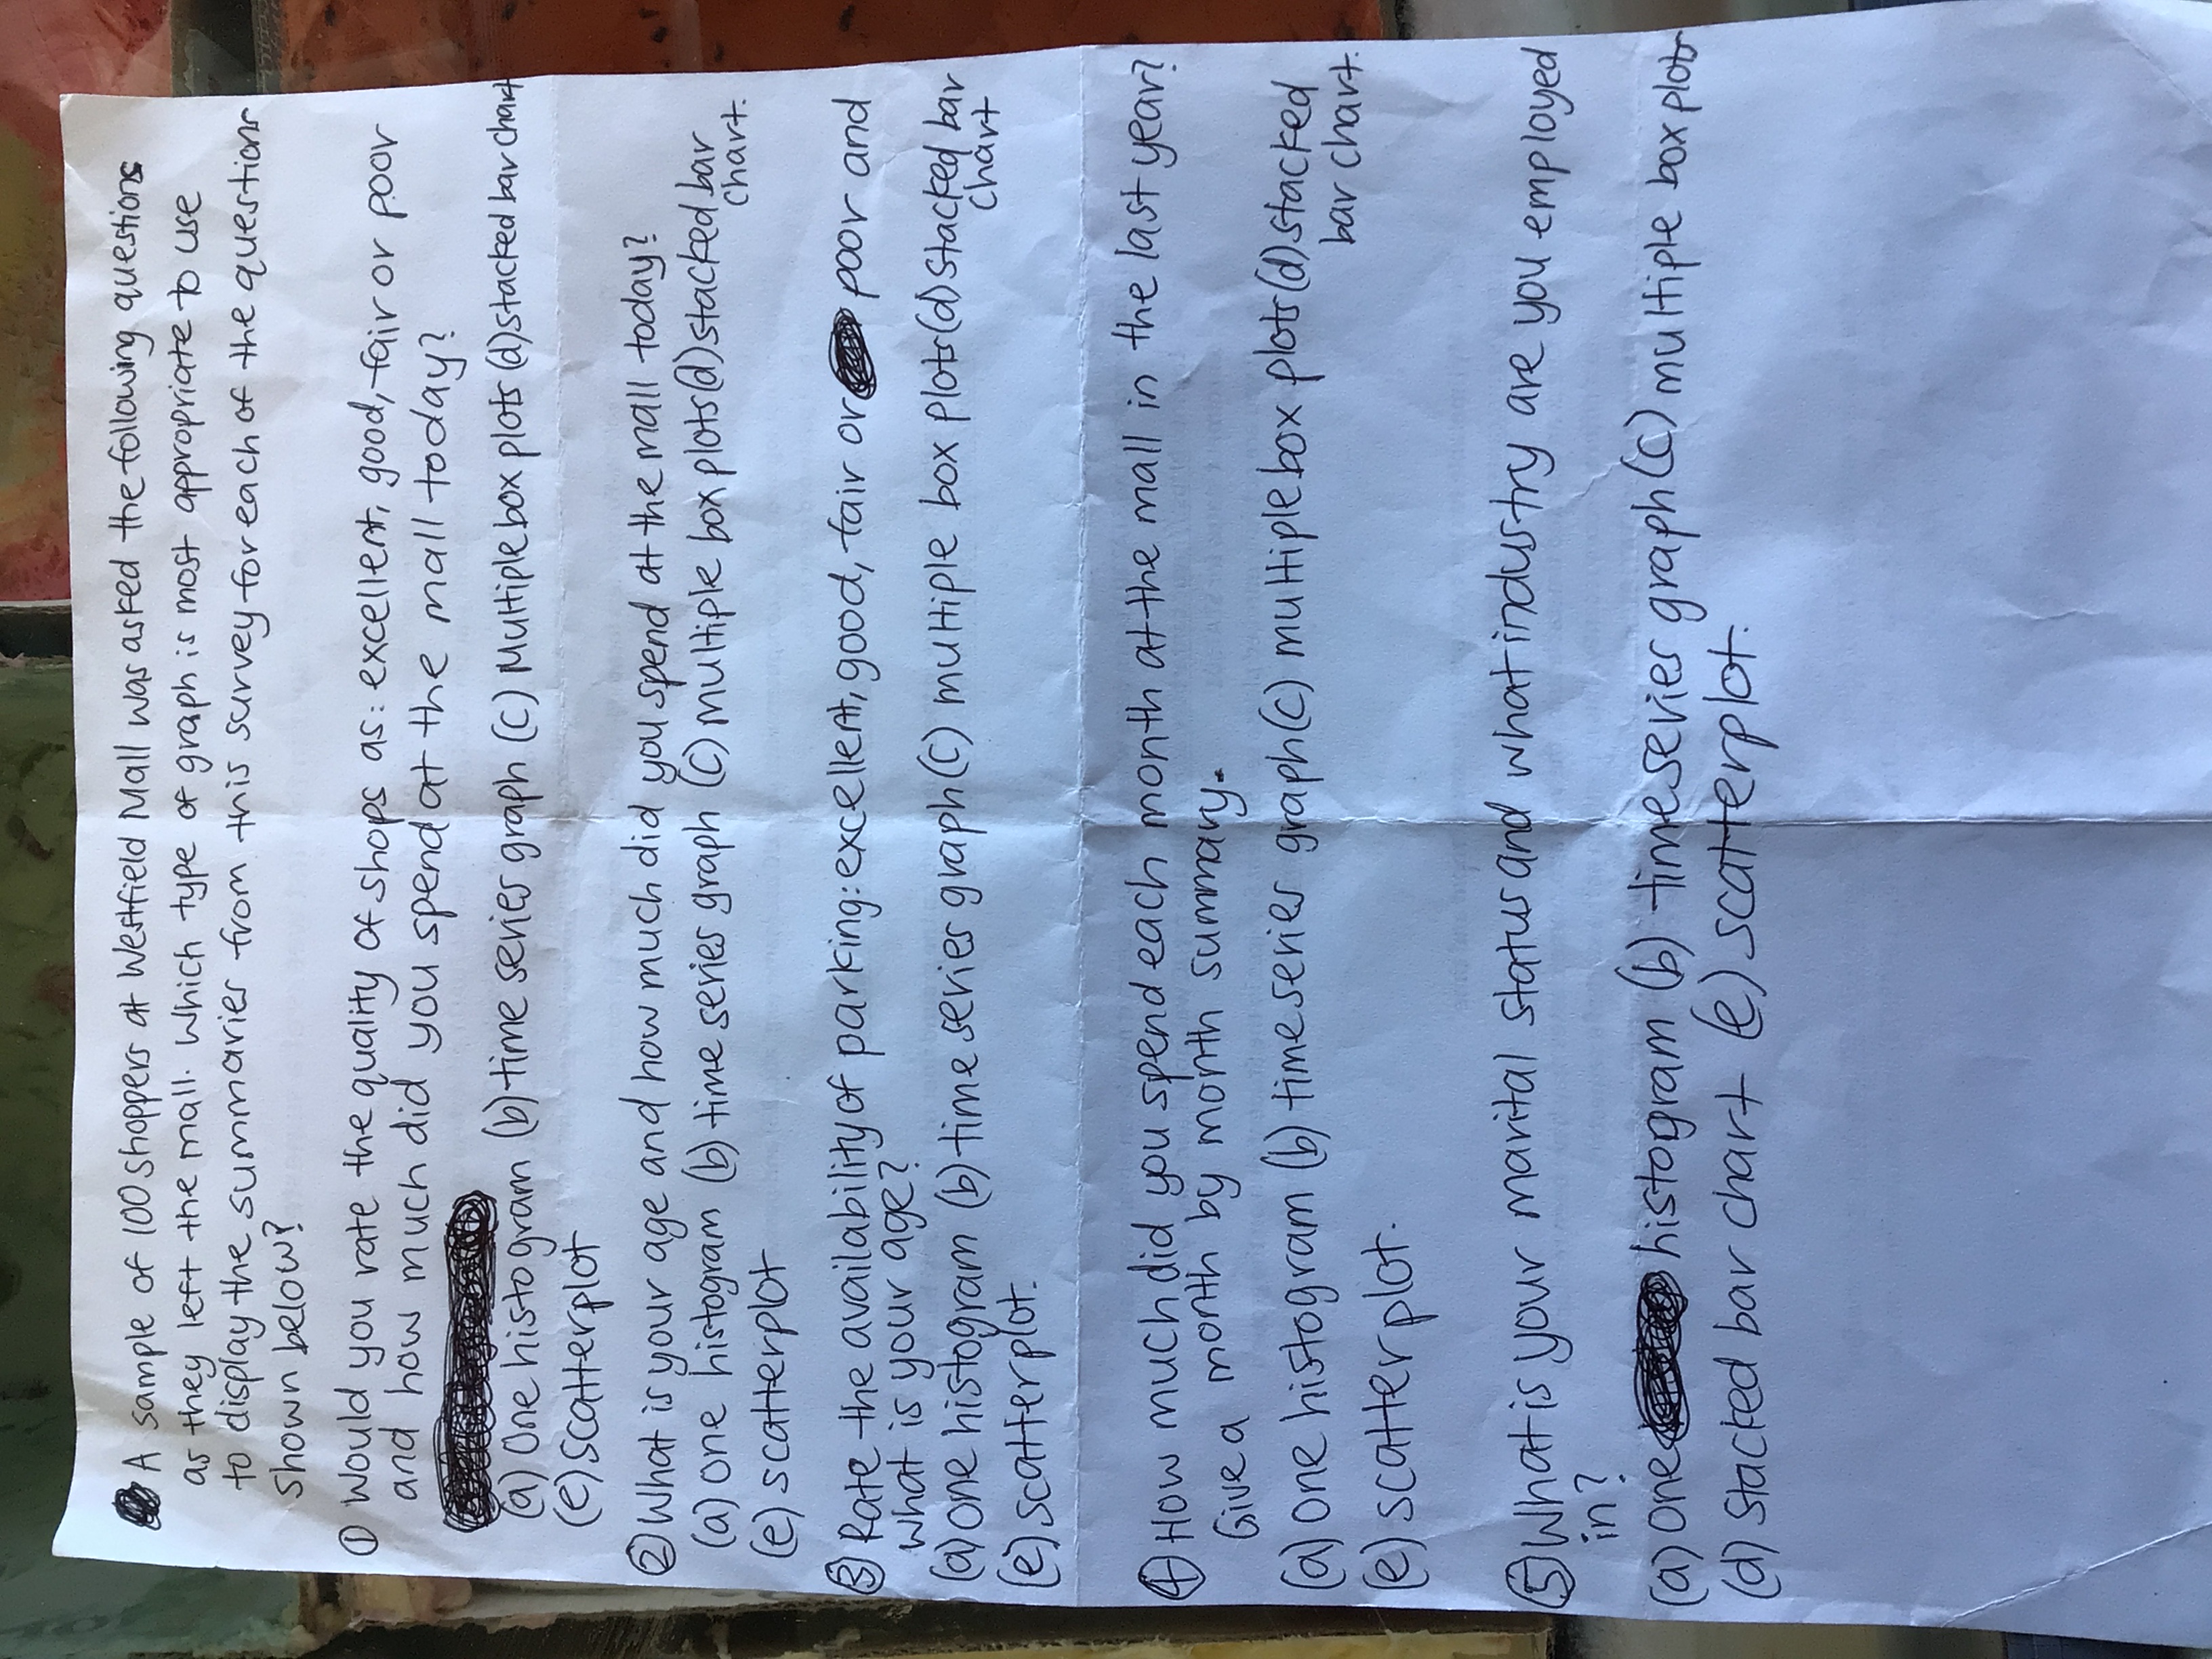 A sample of 100 shoppers at Westfield Mall was asked the following questions
as they left the mall. Which type of graph is most appropriate to use
to display the summaries from this survey for each of the questions
shown below?
① Would you rate the quality of shops as: excellent, good, fair or poor
and how much did you spend at the mall today?
(a) One histogram (b) time series graph (c) Multiple box plots (d) stacked bar chart
(e) scatterplot
② What is your age and how much did you spend at the mall today?
(a) one histogram (b) time series graph (c) multiple box plots (d) stacked bar
chart.
(e) scatterplot
③ Rate the availability of parking: excellent, good, fair or poor and
what is your age?
(a) one histogram (b) time series graph (c) multiple box plots (d) stacked bar
chart
(e) scatterplot.
④ How much did you spend each month at the mall in the last year?
Give a month by month summary.
(a) one histogram (b) time series graph (c) multiple box plots (d) stacked
bar chart.
(e) scatterplot.
⑤ What is your marital status and what industry are you employed
in?
(a) one histogram (b) time series graph (c) multiple box plots
(d) stacked bar chart (e) scatterplot.